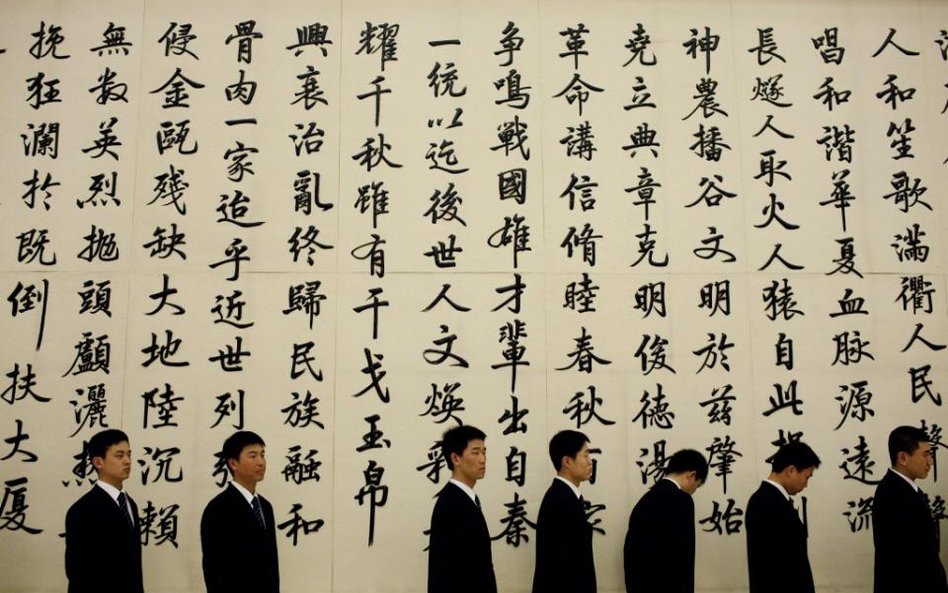 人和笙歌滿衢人民
唱和諧華夏血脈源遠流
長燧人取火人猿自此
神農播谷文明於茲肇始
堯立典章克明俊德湯
革命講信脩睦春秋百家
爭鳴戰國雄才輩出自秦
一統以迄後世人文煥
耀千秋雖有干戈玉帛
興衰治亂終歸民族融和
骨肉一家迨乎近世列強
侵金甌殘缺大地陸沉賴
無数英烈拋頭顱灑熱
挽狂瀾扵既倒扶大廈